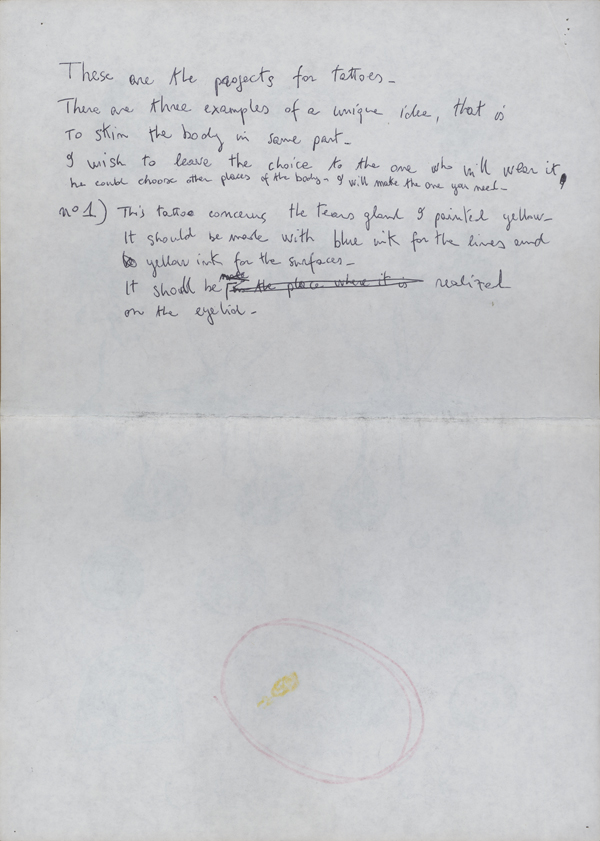 These are the projects for tattoes_
There are three examples of a unique idea, that is
To skim the body in same part_
I wish to leave the choice to the one who will wear it,
he could choose other places of the body_ I will make the one you need_
n°1) This tattoe concerns the tears gland I painted yellow_
It should be made with blue ink for the lines and
yellow ink for the surfaces_
It should be made in the place where it is realized
on the eyelid_